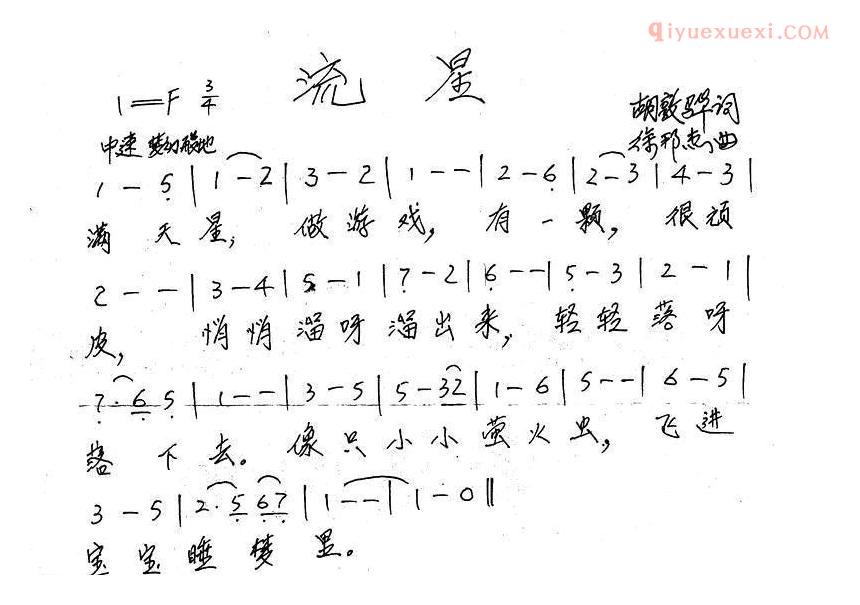 qiyuexuexi.com
流 星
1=F 3/4
胡敦骅词
中速 梦幻般地
徐邦杰曲
1 - 5̣ | 1 - 2 | 3 - 2 | 1 - - | 2 - 6̣ | 2 - 3 | 4 - 3 |
满 天 星, 做 游 戏, 有 一 颗, 很 顽
2 - - | 3 - 4 | 5 - 1 | 7̣ - 2 | 6̣ - - | 5̣ - 3 | 2 - 1 |
皮, 悄 悄 溜 呀 溜 出 来, 轻 轻 落 呀
7̣ · 6̣ 5̣ | 1 - - | 3 - 5 | 5 - 32 | 1 - 6 | 5 - - | 6 - 5 |
落 下 去。 像 只 小 小 萤 火 虫, 飞 进
3 - 5 | 2 · 5̣ 6̣7̣ | 1 - - | 1 - 0 ‖
宝 宝 睡 梦 里。